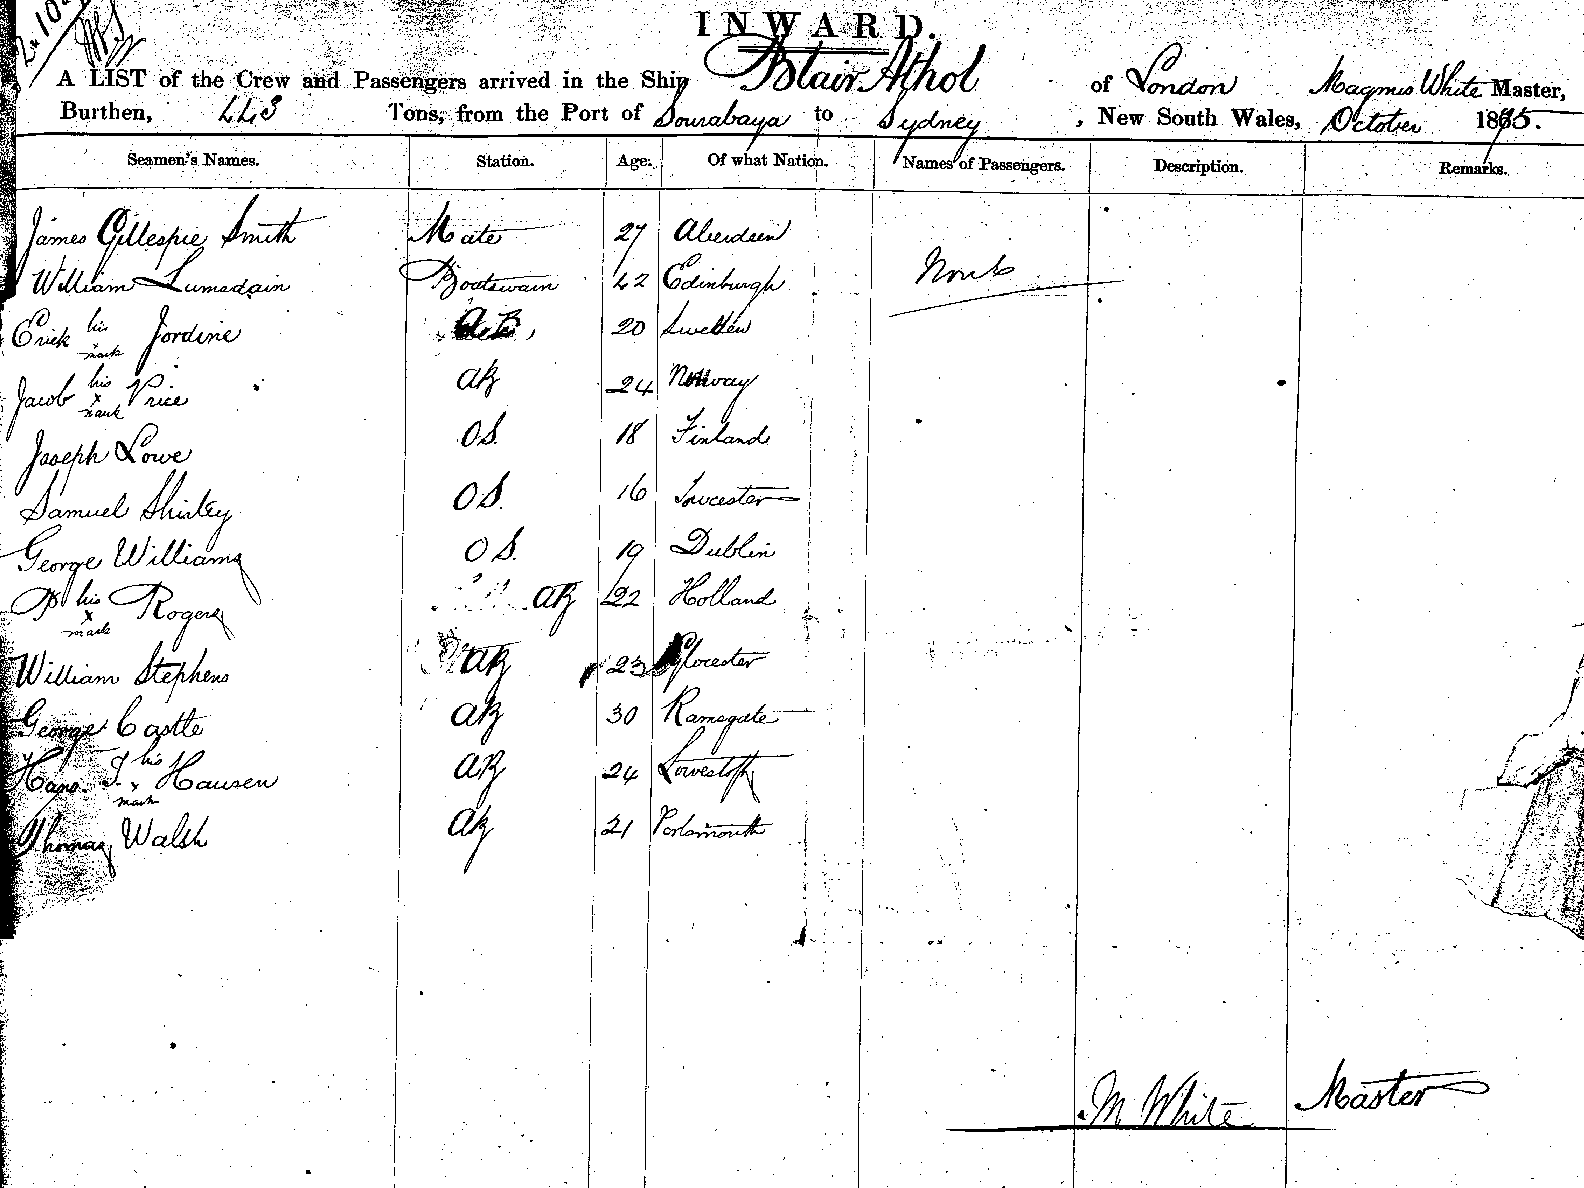 INWARD.
A LIST of the Crew and Passengers arrived in the Ship Blair Athol of London Magnus White Master,
Burthen, 443 Tons, from the Port of Sourabaya to Sydney, New South Wales, October 1865.
Seamen's Names. Station. Age. Of what Nation. Names of Passengers. Description. Remarks.
James Gillespie Smith Mate 27 Aberdeen
William Lumsdain Boatswain 42 Edinburgh None
Erick his x mark Jordine A.B. 20 Sweden
Jacob his x mark Price AB 24 Norway
Joseph Lowe O S. 18 Finland
Samuel Shirley O S. 16 Towcester
George Williams O S. 19 Dublin
P his x mark Rogers AB 22 Holland
William Stephens AB 23 Glocester
George Castle AB 30 Ramsgate
Hans. T. his x mark Hausen AB 24 Lowestoft
Thomas Walsh AB 21 Portsmouth
M White Master